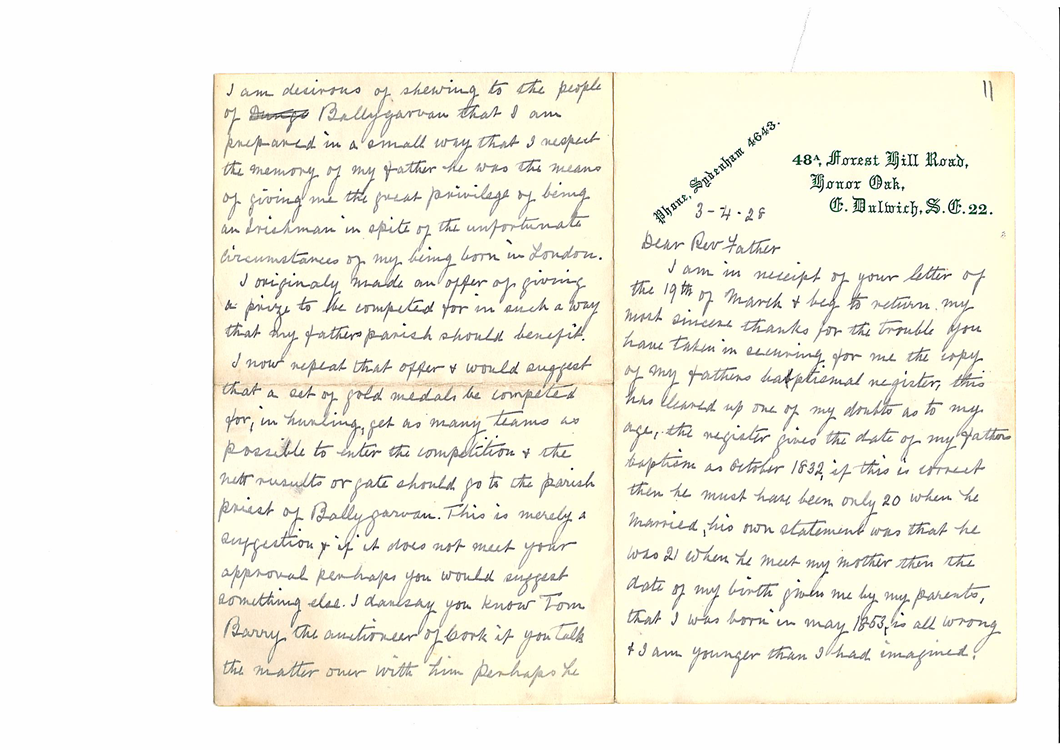 11
Phone, Sydenham 4643.
48A, Forest Hill Road,
Honor Oak,
E. Dulwich, S.E. 22.
3-4-28
Dear Rev Father
I am in receipt of your letter of
the 19th of March & beg to return my
most sincere thanks for the trouble you
have taken in securing for me the copy
of my fathers baptismal register, this
has cleared up one of my doubts as to my
age, the register gives the date of my fathers
baptism as October 1832, if this is correct
then he must have been only 20 when he
married, his own statement was that he
was 21 when he meet my mother then the
date of my birth given me by my parents,
that I was born in may 1853, is all wrong
& I am younger than I had imagined.
I am desirous of shewing to the people
of Dungo Ballygarvan that I am
prepared in a small way that I respect
the memory of my father he was the means
of giving me the great privilege of being
an Irishman in spite of the unfortunate
circumstances of my being born in London.
I originaly made an offer of giving
a prize to be competed for in such a way
that my fathers parish should benefit.
I now repeat that offer & would suggest
that a set of gold medals be competed
for, in hurling, get as many teams as
possible to enter the competition & the
nett rusults or gate should go to the parish
priest of Ballygarvan. This is merely a
suggestion & if it does not meet your
approval perhaps you would suggest
something else. I daresay you know Tom
Barry the auctioneer of Cork if you talk
the matter over with him perhaps he